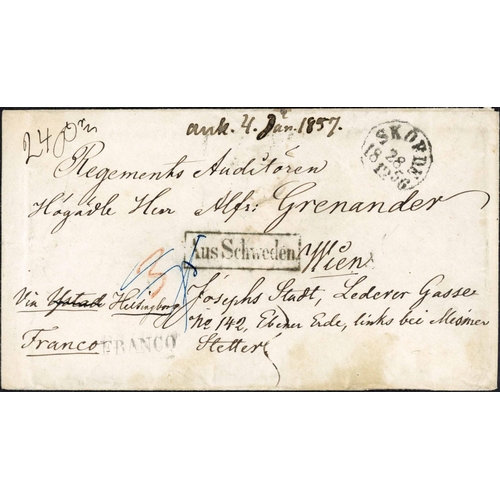 ank. 4. Jan. 1857.
24
SKÖFDE
28
12
1856
Regements Auditören
Högädle Herr Alfr: Grenander
Aus Schweden
Wien
Via Ystad Helsingborg
Josephs Stadt, Lederer Gasse
No 142, Ebener Erde, links bei
Stetter
Franco
FRANCO